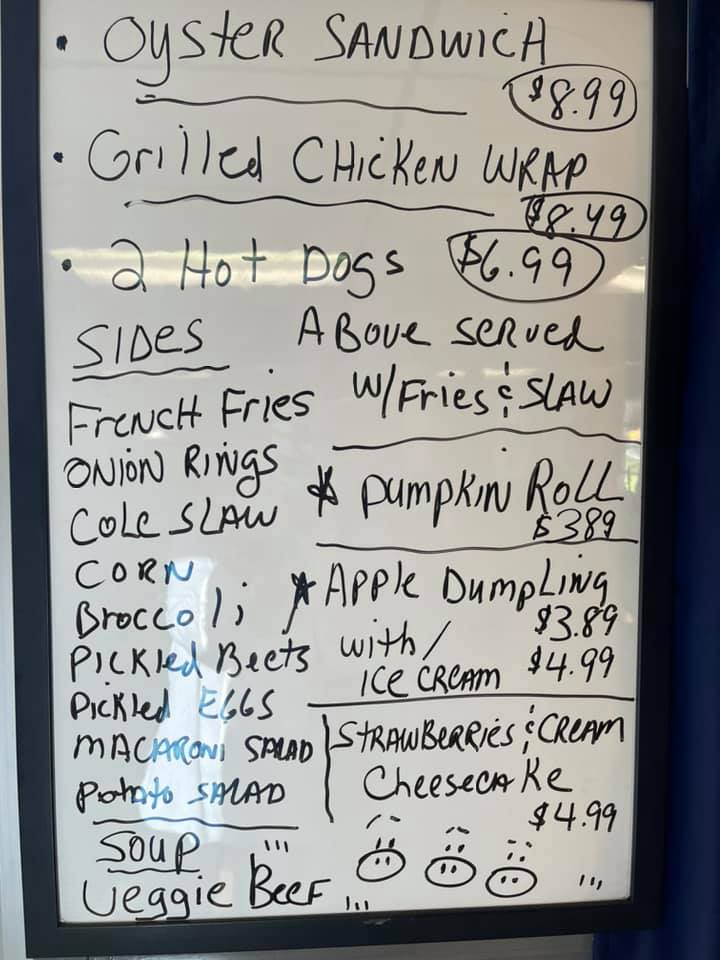 • Oyster SANDWICH
$8.99
• Grilled CHicKeN WRAP
$8.49
• 2 Hot Dogs $6.99
SIDes
ABove served
w/Fries & SLAW
FreNCH Fries
ONioN RiNgs
Cole SLAW
CORN
Broccoli
PICKled Beets
Pickled EGGS
MACARONi SALAD
Potato SALAD
* PumpkiN Roll
$389
* APPle DumpLiNg
$3.89
with/
ICe CReAM $4.99
STRAWBeRRies & CREAM
CheesecAKe
$4.99
SOUP
Veggie BeeF